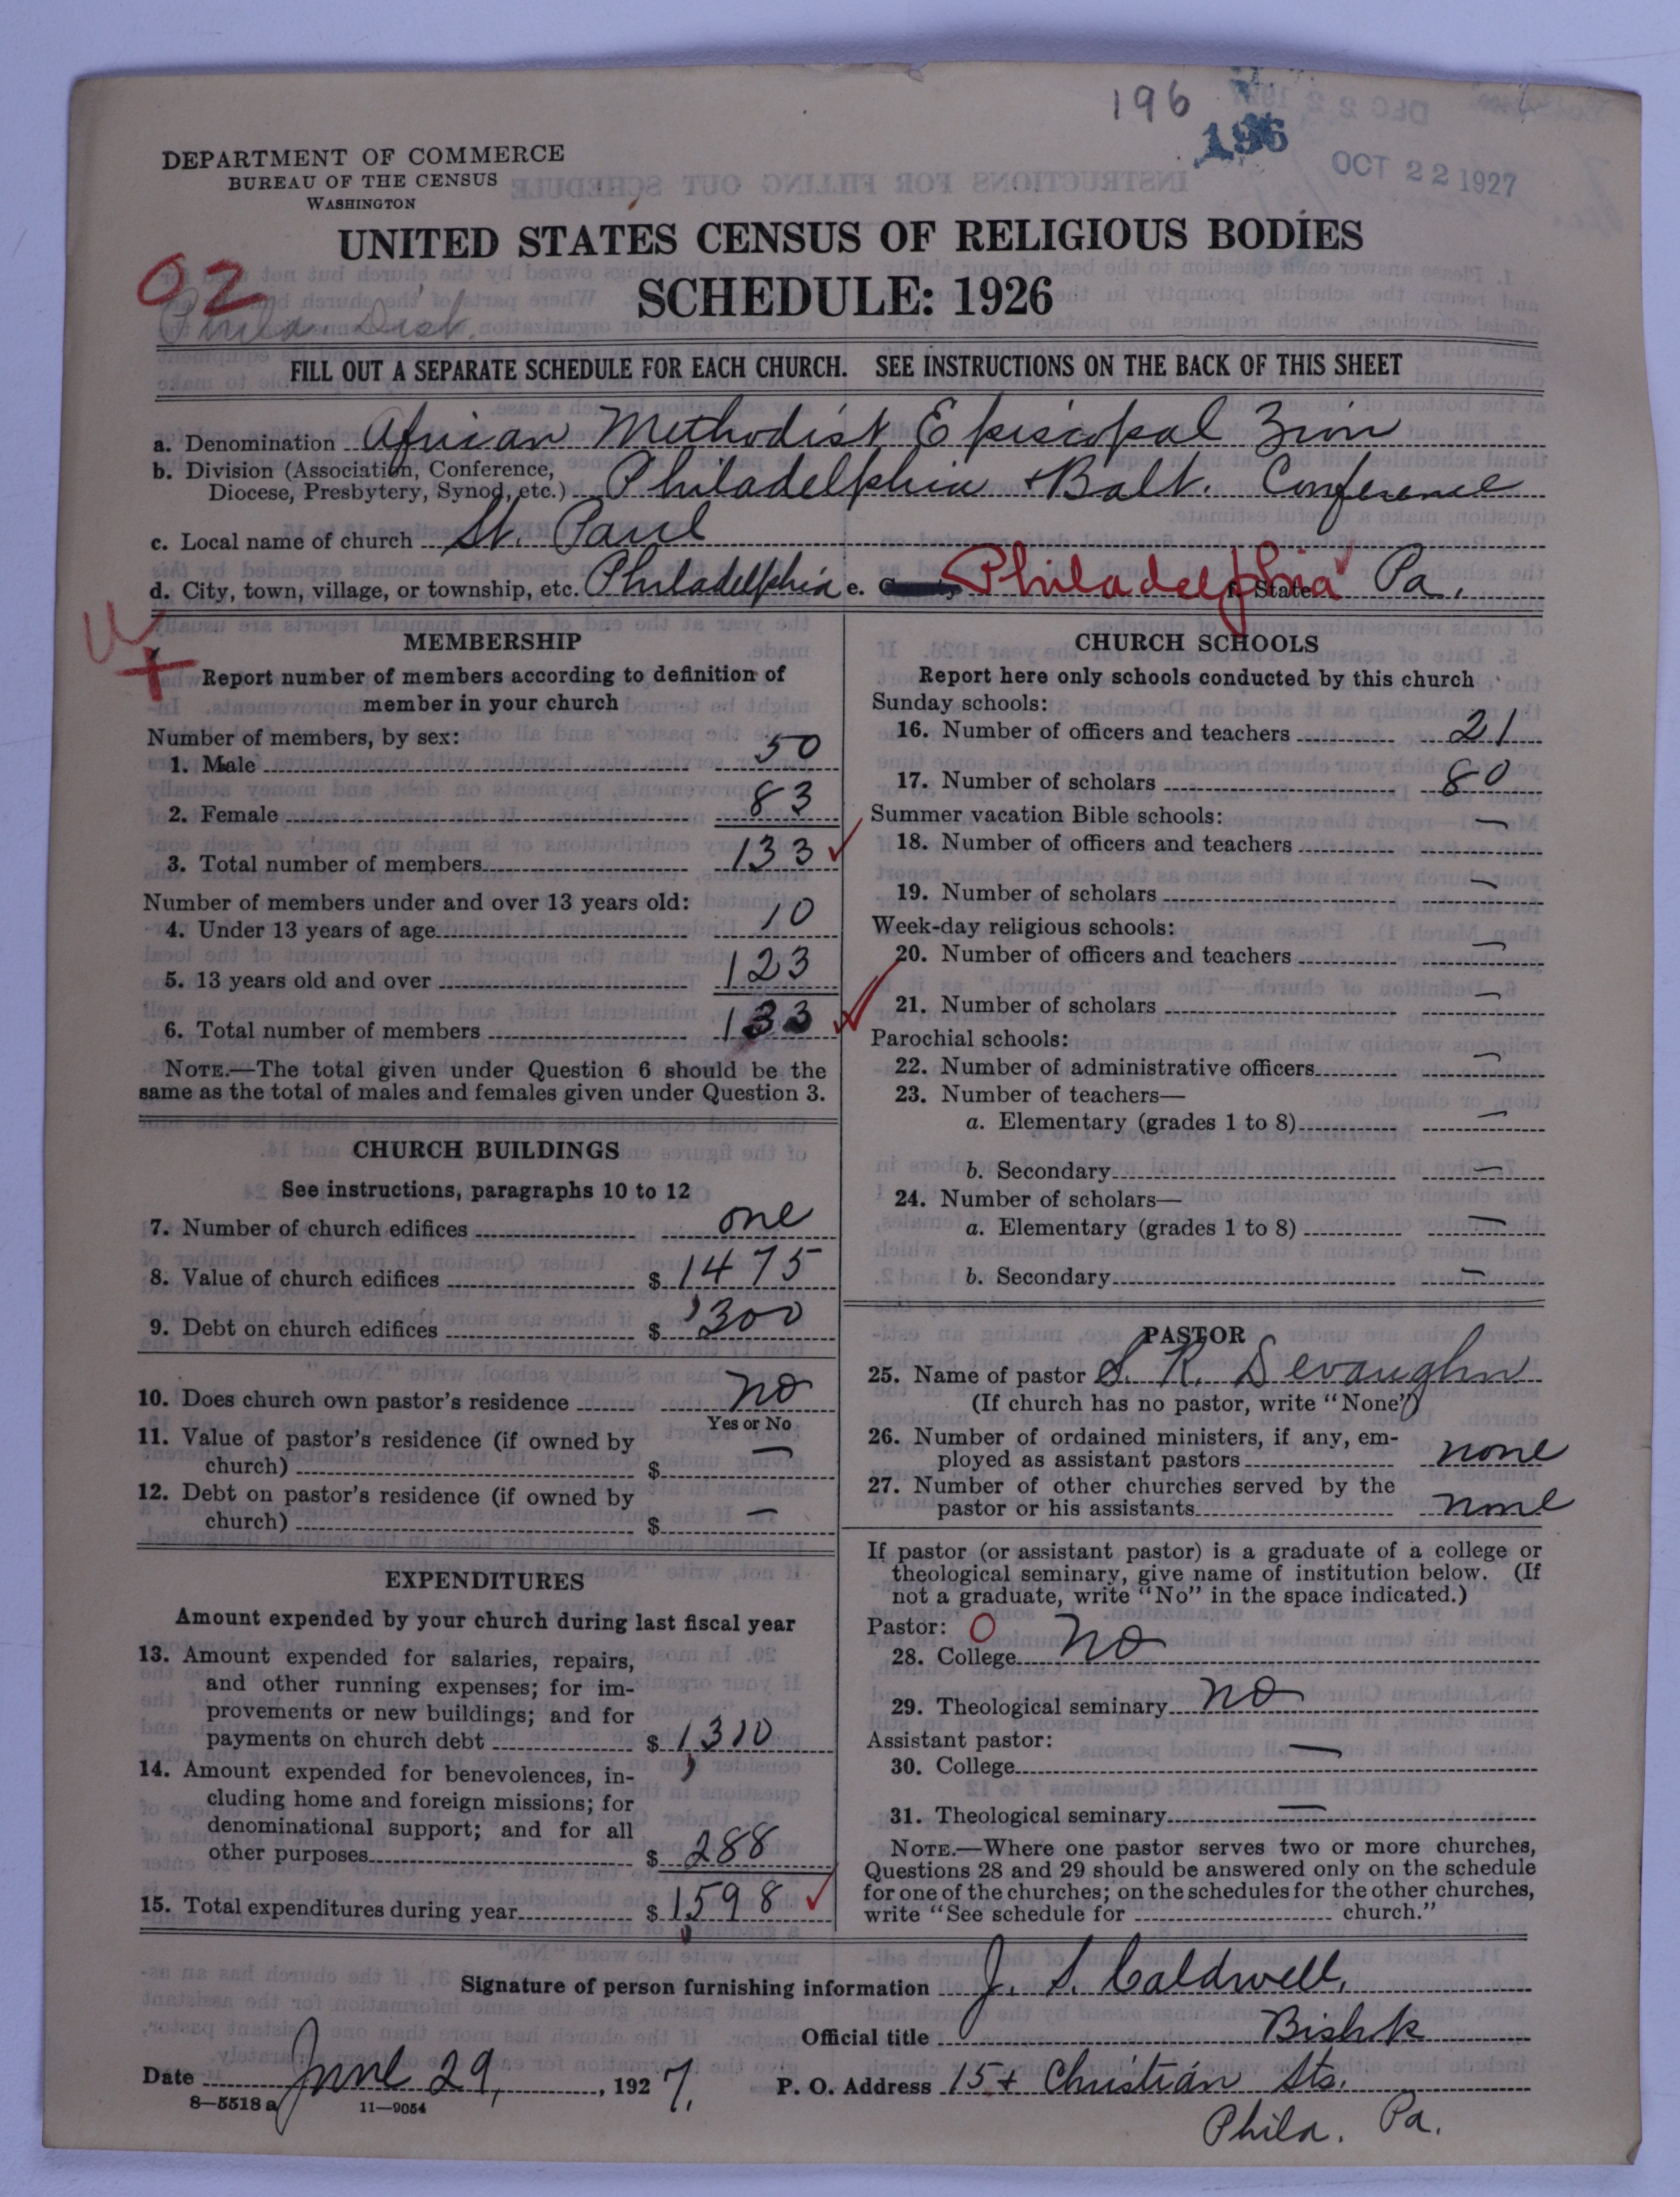 196
196
OCT 22 1927
DEPARTMENT OF COMMERCE
BUREAU OF THE CENSUS
WASHINGTON
UNITED STATES CENSUS OF RELIGIOUS BODIES
SCHEDULE: 1926
02
Phila. Dist.
FILL OUT A SEPARATE SCHEDULE FOR EACH CHURCH. SEE INSTRUCTIONS ON THE BACK OF THIS SHEET
a. Denomination African Methodist Episcopal Zion
b. Division (Association, Conference,
Diocese, Presbytery, Synod, etc.) Philadelphia + Balt. Conference
c. Local name of church St. Paul
d. City, town, village, or township, etc. Philadelphia e. Philadelphia f. State Pa.
MEMBERSHIP
Report number of members according to definition of
member in your church
Number of members, by sex:
1. Male 50
2. Female 83
3. Total number of members 133
Number of members under and over 13 years old:
4. Under 13 years of age 10
5. 13 years old and over 123
6. Total number of members 133
NOTE.—The total given under Question 6 should be the
same as the total of males and females given under Question 3.
CHURCH BUILDINGS
See instructions, paragraphs 10 to 12
7. Number of church edifices one
8. Value of church edifices $ 1,475
9. Debt on church edifices $ 300
10. Does church own pastor's residence no
Yes or No
11. Value of pastor's residence (if owned by
church) $ —
12. Debt on pastor's residence (if owned by
church) $ —
EXPENDITURES
Amount expended by your church during last fiscal year
13. Amount expended for salaries, repairs,
and other running expenses; for im-
provements or new buildings; and for
payments on church debt $ 1,310
14. Amount expended for benevolences, in-
cluding home and foreign missions; for
denominational support; and for all
other purposes $ 288
15. Total expenditures during year $ 1,598
CHURCH SCHOOLS
Report here only schools conducted by this church
Sunday schools:
16. Number of officers and teachers 21
17. Number of scholars 80
Summer vacation Bible schools:
18. Number of officers and teachers —
19. Number of scholars —
Week-day religious schools:
20. Number of officers and teachers —
21. Number of scholars —
Parochial schools:
22. Number of administrative officers —
23. Number of teachers—
a. Elementary (grades 1 to 8) —
b. Secondary —
24. Number of scholars—
a. Elementary (grades 1 to 8) —
b. Secondary —
PASTOR
25. Name of pastor S. R. Devaughn
(If church has no pastor, write "None")
26. Number of ordained ministers, if any, em-
ployed as assistant pastors none
27. Number of other churches served by the
pastor or his assistants none
If pastor (or assistant pastor) is a graduate of a college or
theological seminary, give name of institution below. (If
not a graduate, write "No" in the space indicated.)
Pastor: 0
28. College no
29. Theological seminary no
Assistant pastor:
30. College —
31. Theological seminary —
NOTE.—Where one pastor serves two or more churches,
Questions 28 and 29 should be answered only on the schedule
for one of the churches; on the schedules for the other churches,
write "See schedule for church."
Signature of person furnishing information J. S. Caldwell,
Official title Bishop
Date June 29, 1927. P. O. Address 15 + Christian Sts.
Phila. Pa.
8—5518a 11—9054